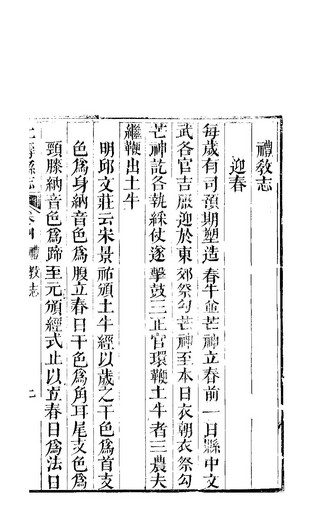 禮教志
迎春
每歲有司預期塑造春牛並芒神立春前一日縣中文
武各官吉服迎於東郊祭勾芒神至本日衣朝衣祭勾
芒神訖各執綵仗遂擊鼓三正官環鞭土牛者三農夫
繼鞭出土牛
明邱文莊云宋景祐頒土牛經以歲之干色爲首支
色爲身納音色爲腹立春日干色爲角耳尾支色爲
頸膝納音色爲蹄至元頒經式止以立春日爲法日
縣志
禮教志